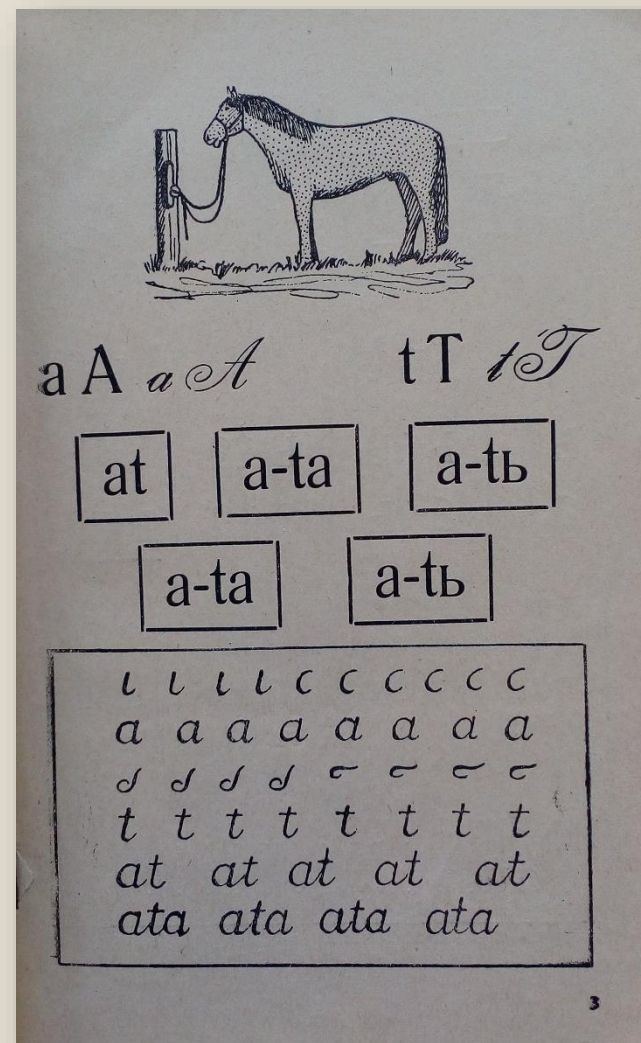 a A a A t T t T
at a-ta a-tь
a-ta a-tь
ı ı ı ı c c c c c c
a a a a a a a a
t t t t t t t t
at at at at at
ata ata ata ata
3